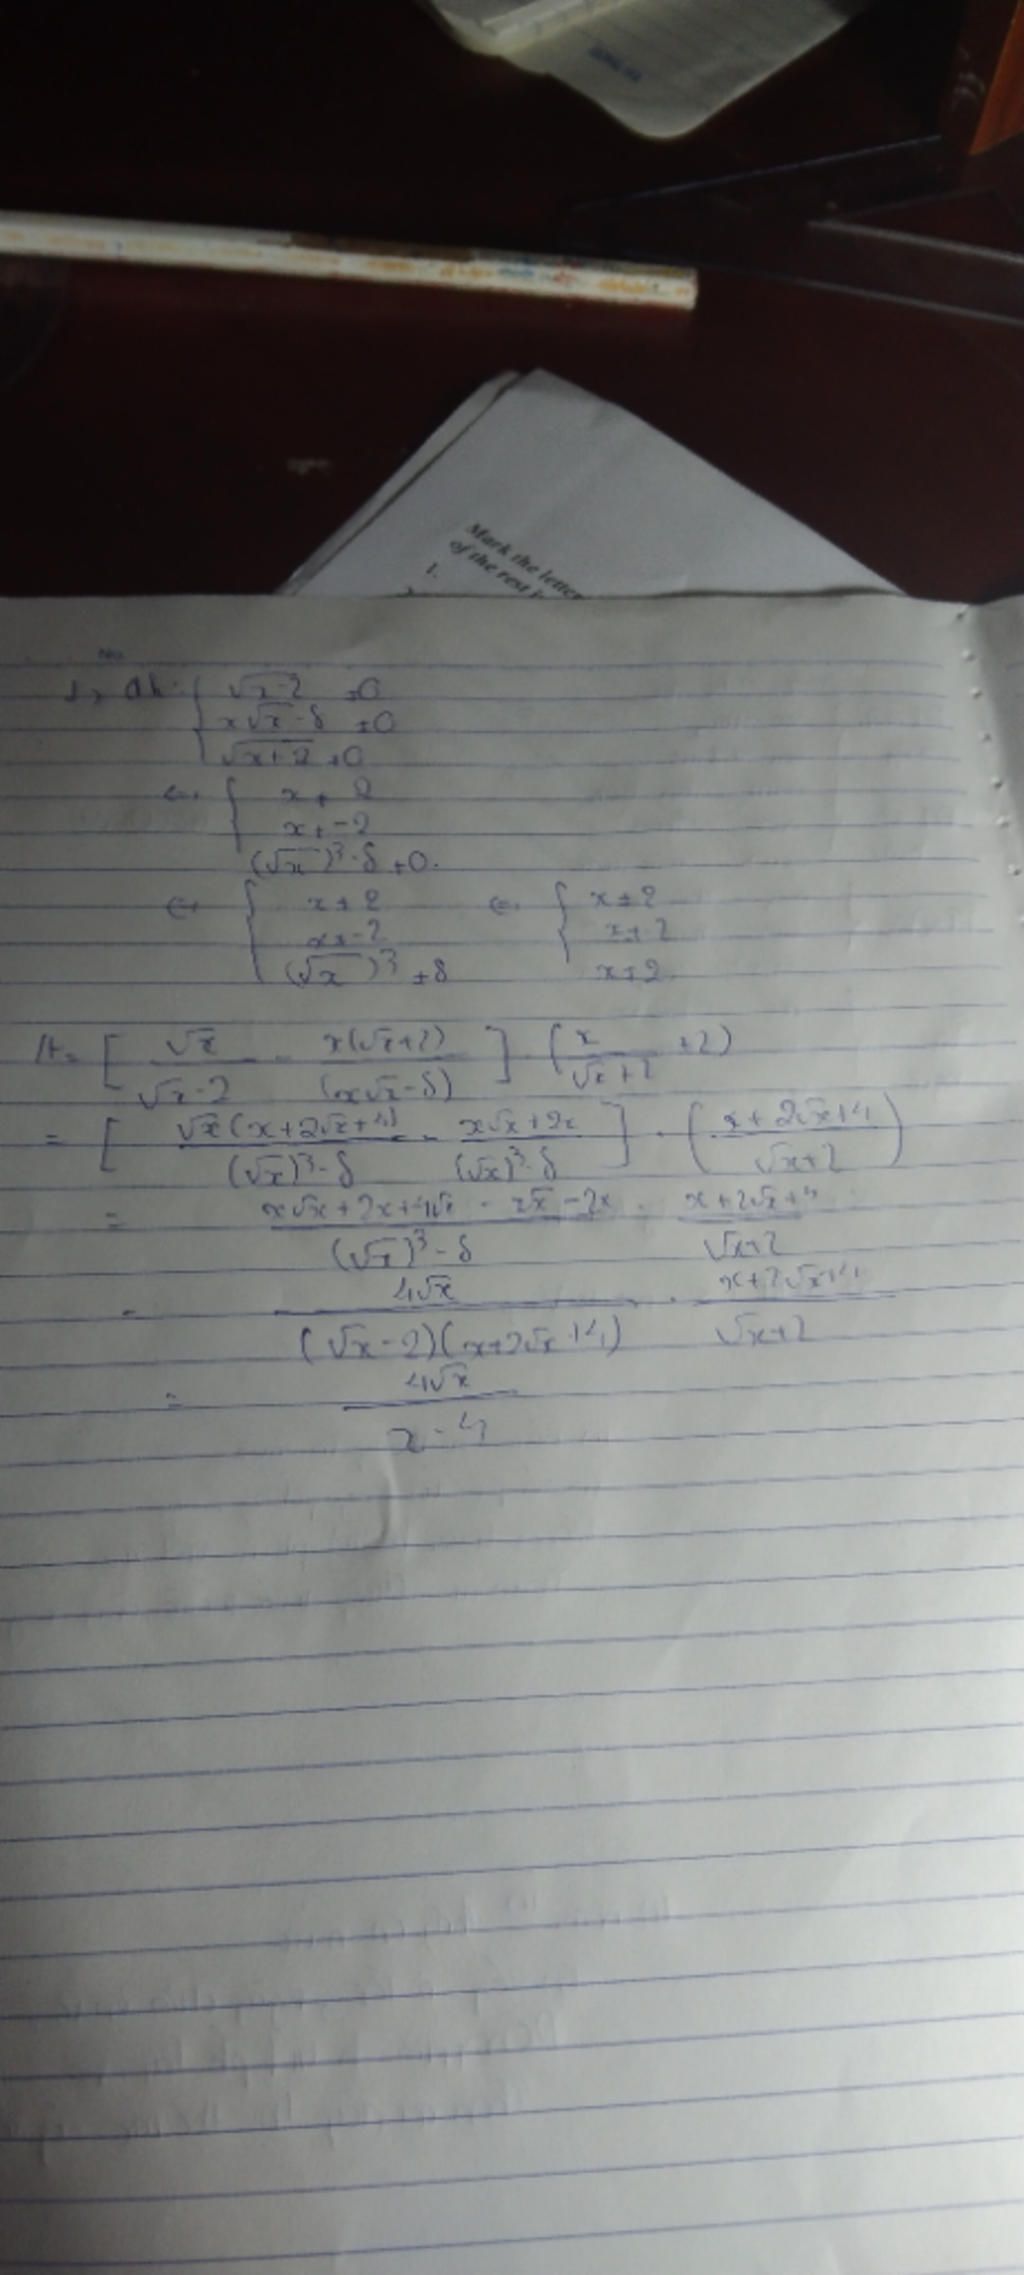 Mark the letter
of the rest i
1.
No.
1, đk: { √x-2 ≠0
x√x-8 ≠0
√x+2 ≠0
<=> { x ≠ 2
x ≠ -2
(√x)³-8 ≠0.
<=> { x ≠ 2 <=> { x ≠ 2
x ≠ -2 x ≠ -2
(√x)³ ≠ 8 x ≠ 2
A = [ √x/(√x-2) - x(√x+2)/(x√x-8) ] . (x/(√x+2) +2)
= [ √x(x+2√x+4)/((√x)³-8) - (x√x+2x)/((√x)³-8) ] . ( (x+2√x+4)/(√x+2) )
= (x√x+2x+4√x - x√x-2x)/((√x)³-8) . (x+2√x+4)/(√x+2)
= 4√x/((√x-2)(x+2√x+4)) . (x+2√x+4)/(√x+2)
= 4√x/(x-4)